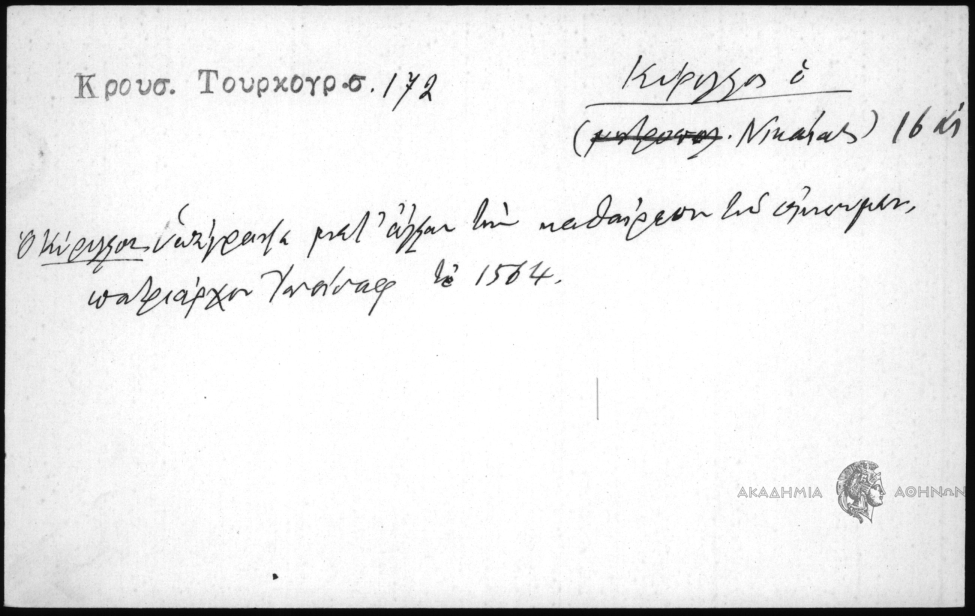 Κρουσ. Τουρκογρ.σ. 172
Κύριλλος ὁ
(μητροπολ. Νικαίας) 16 αἰ
Ὁ Κύριλλος ὑπέγραψε μετ' ἄλλων τὴν καθαίρεσιν τοῦ οἰκουμεν.
πατριάρχου Ἰωάσαφ τὸ 1564.
ΑΚΑΔΗΜΙΑ ΑΘΗΝΩΝ